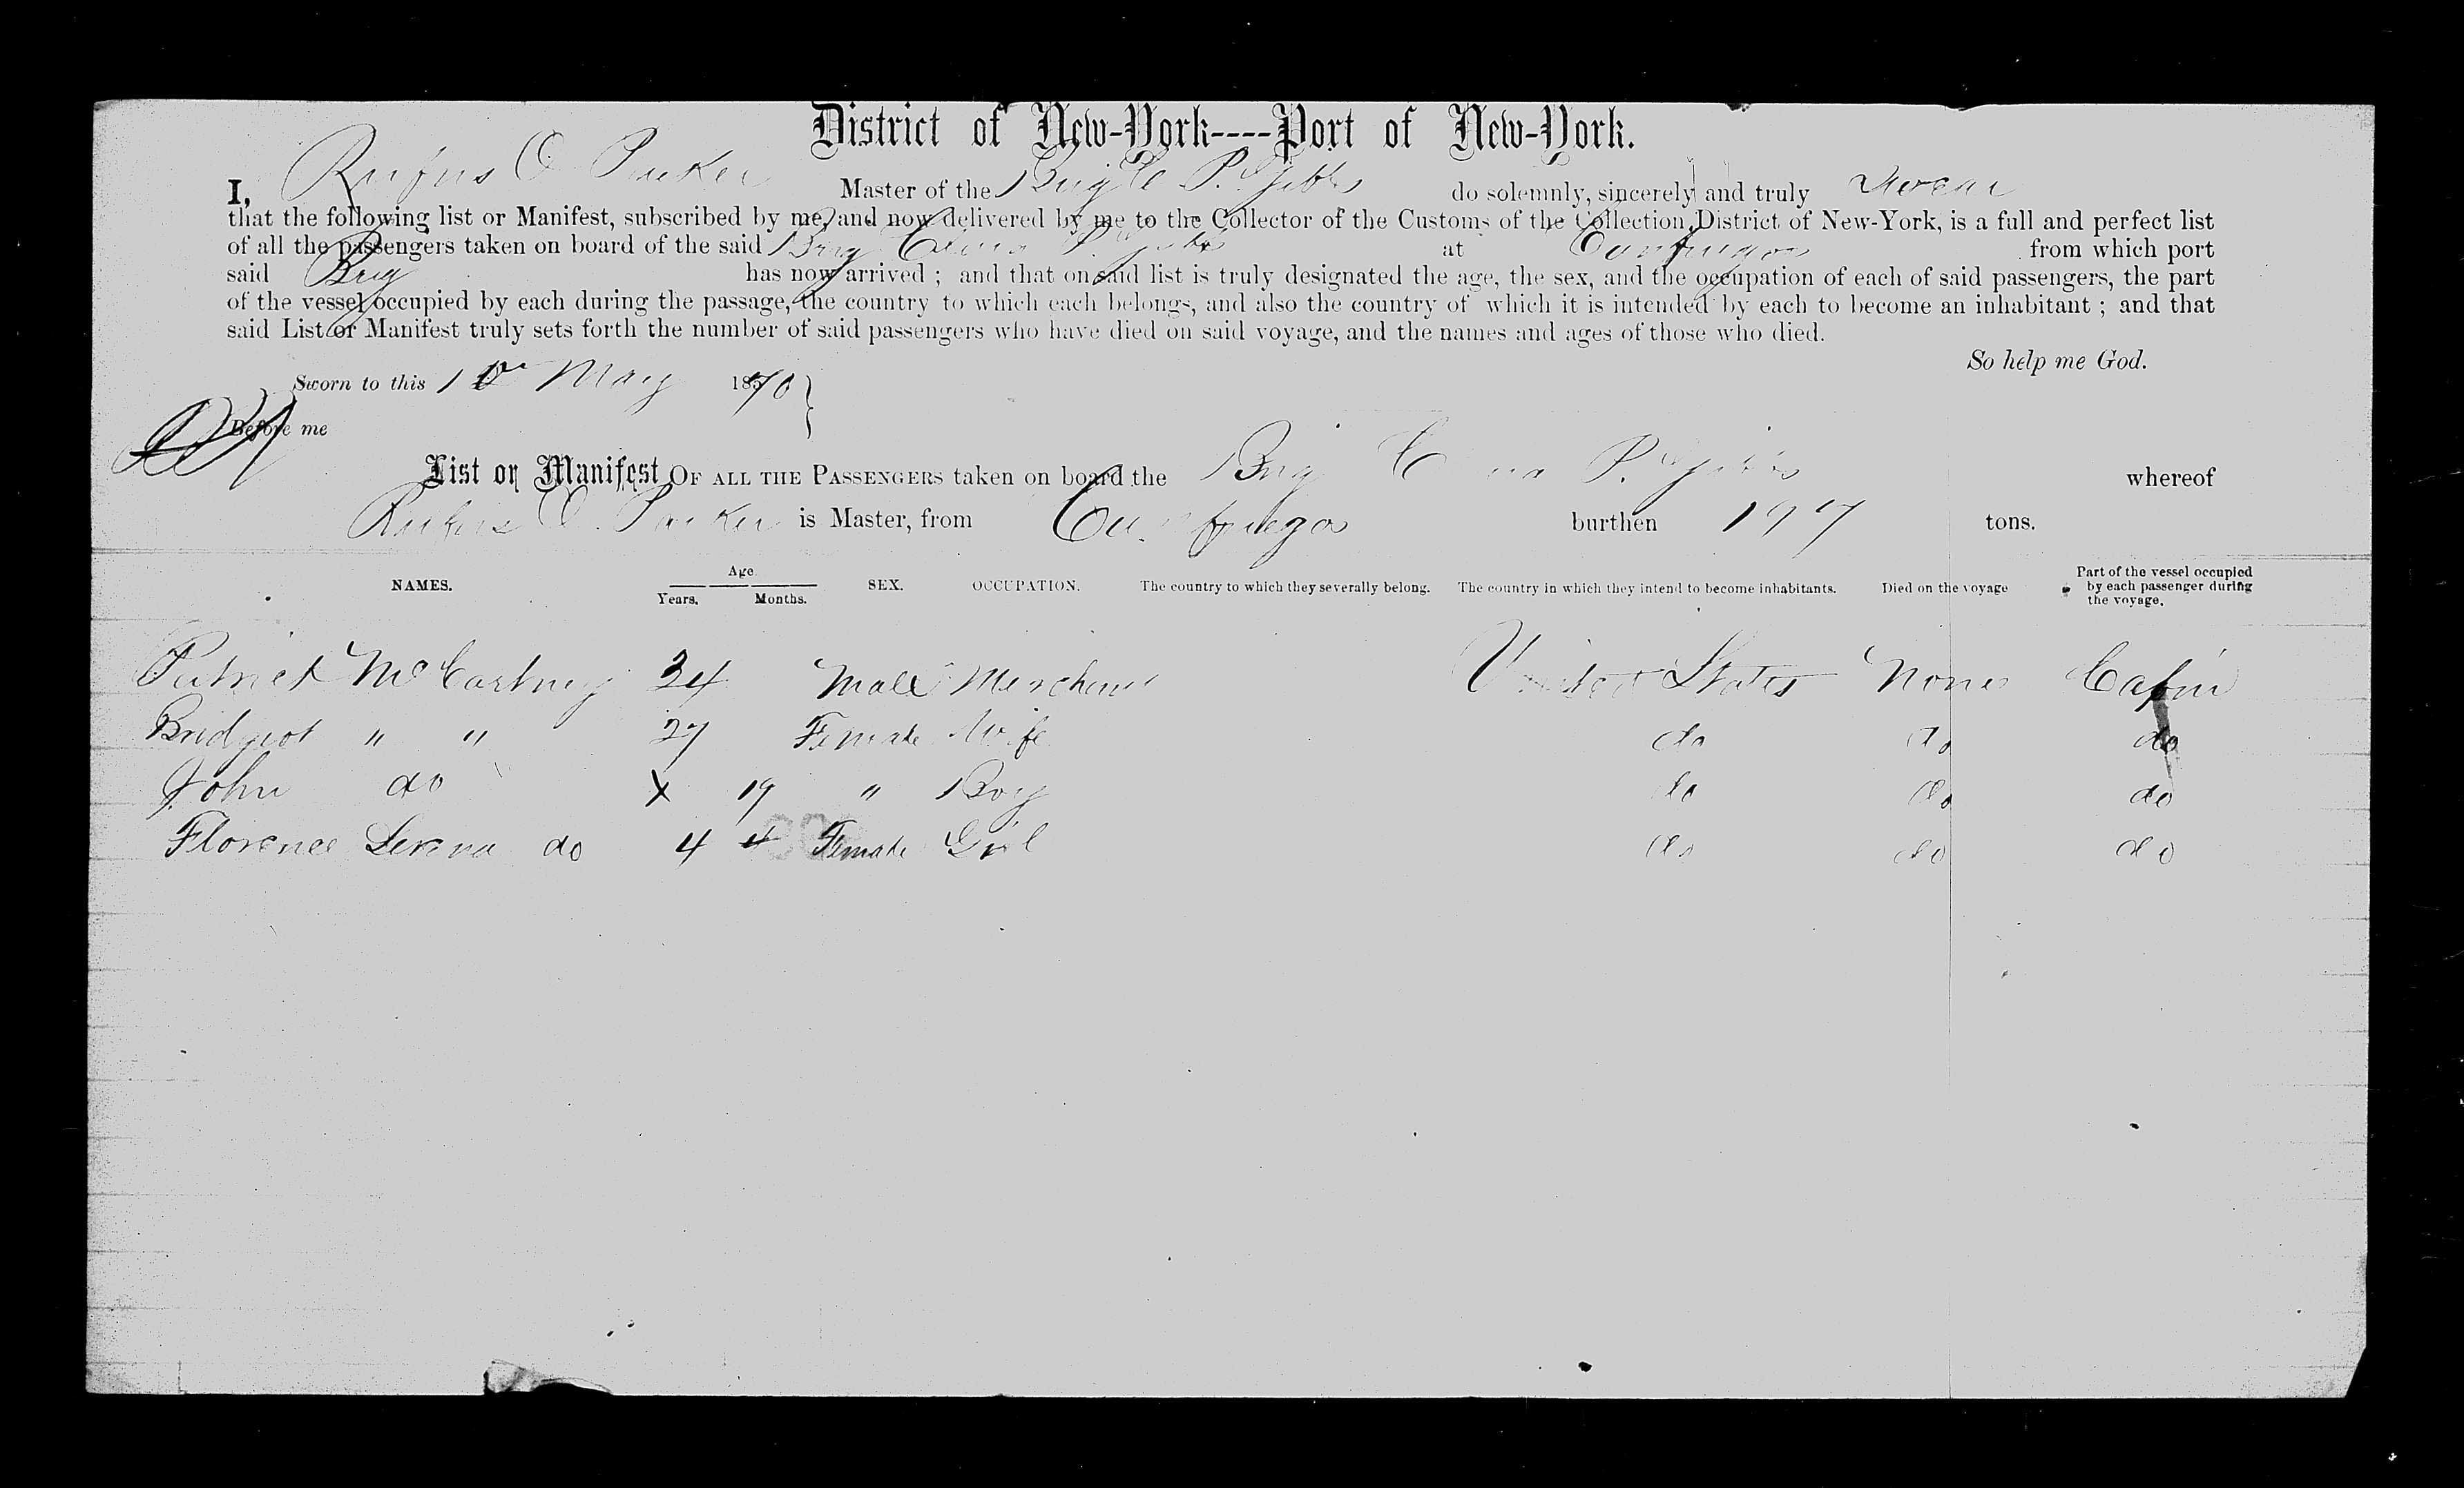 District of New-York----Port of New-York.
I, Rufus O Parker Master of the Brig C P. Gibbs do solemnly, sincerely and truly swear
that the following list or Manifest, subscribed by me, and now delivered by me to the Collector of the Customs of the Collection District of New-York, is a full and perfect list
of all the passengers taken on board of the said Brig P. Gibbs at Cienfuegos from which port
said Brig has now arrived ; and that on said list is truly designated the age, the sex, and the occupation of each of said passengers, the part
of the vessel occupied by each during the passage, the country to which each belongs, and also the country of which it is intended by each to become an inhabitant ; and that
said List or Manifest truly sets forth the number of said passengers who have died on said voyage, and the names and ages of those who died.
So help me God.
Sworn to this May 1870
Before me
List or Manifest OF ALL THE PASSENGERS taken on board the Brig P. Gibbs whereof
Rufus O. Parker is Master, from Cienfuegos burthen 197 tons.
NAMES. Age. Years. Months. SEX. OCCUPATION. The country to which they severally belong. The country in which they intend to become inhabitants. Died on the voyage Part of the vessel occupied by each passenger during the voyage.
Patrick McCartney 34 Male Merchant United States None Cabin
Bridget " " 27 Female Wife do do do
John do X 19 " Boy do do do
Florence do 4 4 Female Girl do do do